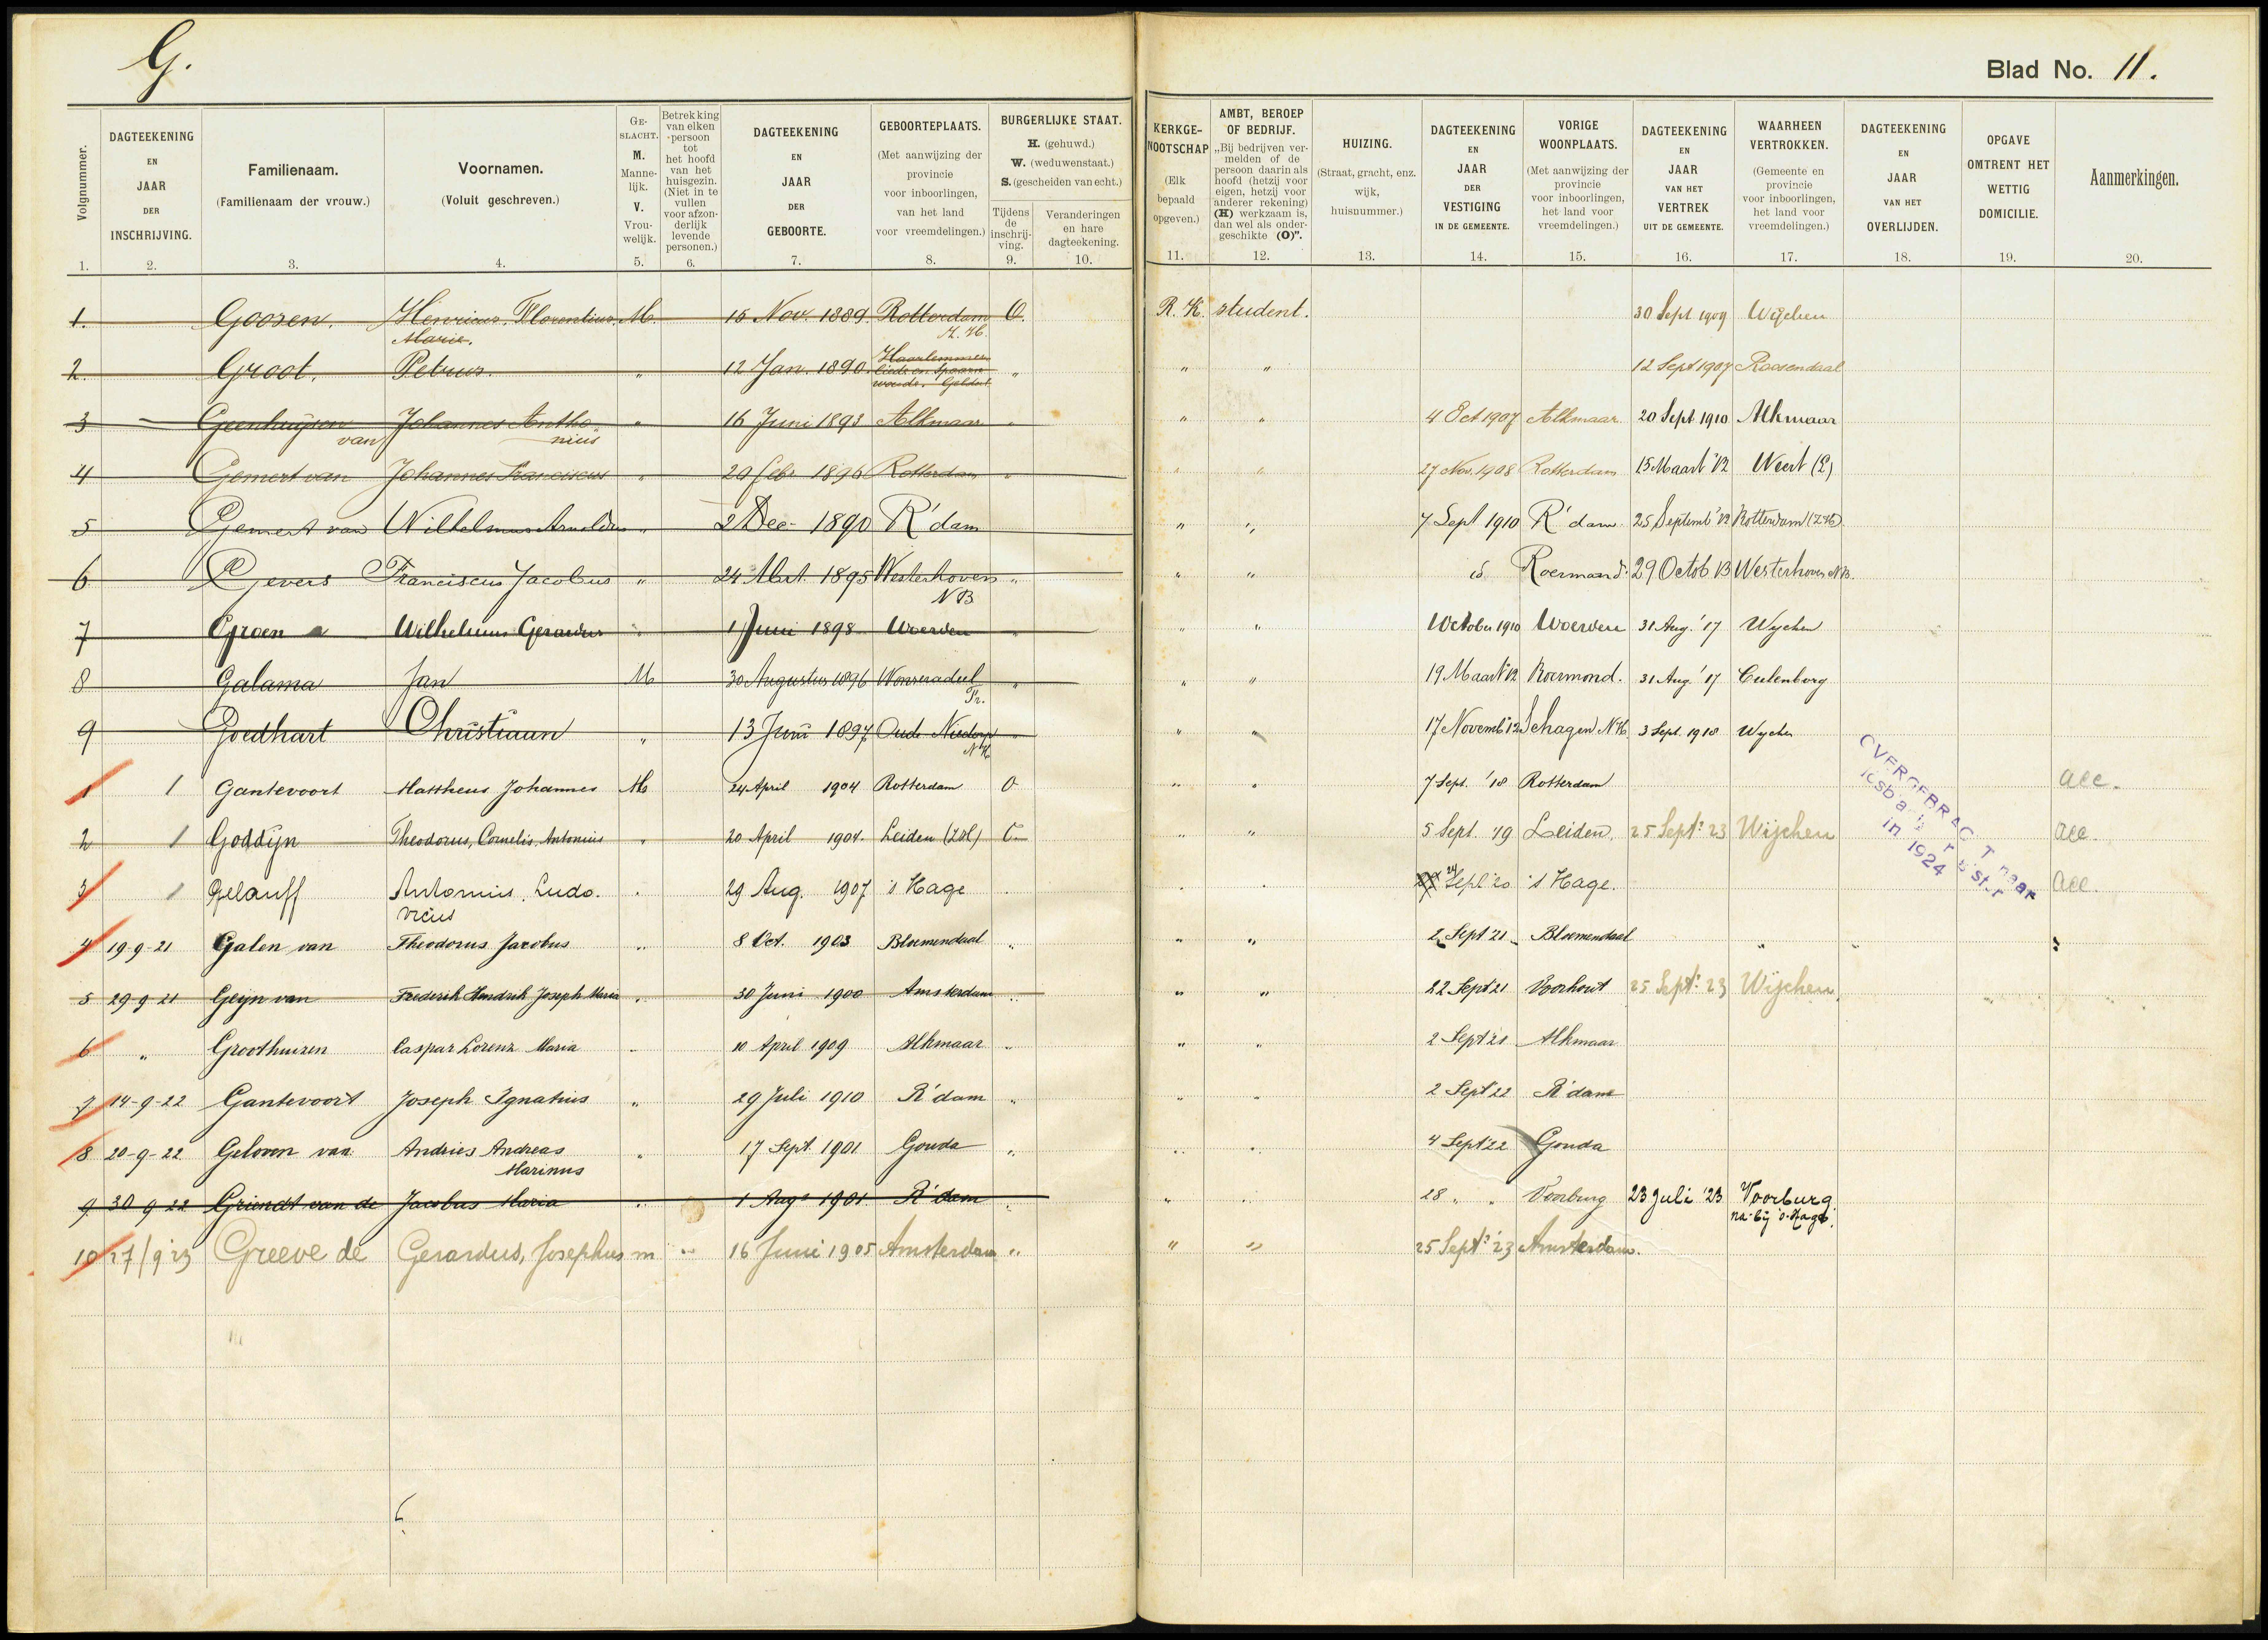 G.
Blad No. 11.
Volgnummer.
1.
DAGTEEKENING
EN
JAAR
DER
INSCHRIJVING.
2.
Familienaam.
(Familienaam der vrouw.)
3.
Voornamen.
(Voluit geschreven.)
4.
GE-
SLACHT.
M.
Manne-
lijk.
V.
Vrou-
welijk.
5.
Betrekking
van elken
persoon
tot
het hoofd
van het
huisgezin.
(Niet in te
vullen
voor afzon-
derlijk
levende
personen.)
6.
DAGTEEKENING
EN
JAAR
DER
GEBOORTE.
7.
GEBOORTEPLAATS.
(Met aanwijzing der
provincie
voor inboorlingen,
van het land
voor vreemdelingen.)
8.
BURGERLIJKE STAAT.
H. (gehuwd.)
W. (weduwenstaat.)
S. (gescheiden van echt.)
Tijdens
de
inschrij-
ving.
9.
Veranderingen
en hare
dagteekening.
10.
KERKGE-
NOOTSCHAP
(Elk
bepaald
opgeven.)
11.
AMBT, BEROEP
OF BEDRIJF.
„Bij bedrijven ver-
melden of de
persoon daarin als
hoofd (hetzij voor
eigen, hetzij voor
anderer rekening)
(H) werkzaam is,
dan wel als onder-
geschikte (O)”.
12.
HUIZING.
(Straat, gracht, enz.
wijk,
huisnummer.)
13.
DAGTEEKENING
EN
JAAR
DER
VESTIGING
IN DE GEMEENTE.
14.
VORIGE
WOONPLAATS.
(Met aanwijzing der
provincie
voor inboorlingen,
het land voor
vreemdelingen.)
15.
DAGTEEKENING
EN
JAAR
VAN HET
VERTREK
UIT DE GEMEENTE.
16.
WAARHEEN
VERTROKKEN.
(Gemeente en
provincie
voor inboorlingen,
het land voor
vreemdelingen.)
17.
DAGTEEKENING
EN
JAAR
VAN HET
OVERLIJDEN.
18.
OPGAVE
OMTRENT HET
WETTIG
DOMICILIE.
19.
Aanmerkingen.
20.
1. Goosen. Henricus Florentius M. 15 Nov. 1889. Rotterdam O. R.K. student. 30 Sept 1909 Wijchen
Marie. Z.H.
2. Groot. Petrus. " 12 Jan. 1890. Haarlemmer " " " 12 Sept 1907 Roosendaal
liede en Spaarn
woude.
3 Geenhuijsen Johannes Antho- " 16 Juni 1893 Alkmaar " " " 4 Oct 1907 Alkmaar 20 Sept 1910 Alkmaar
van nius
4 Gemert van Johannes Franciscus " 29 febr 1896 Rotterdam " " " 27 Nov. 1908 Rotterdam 15 Maart '12 Weert (L)
5 Gemert van Wilhelmus Arnoldus " 2 Dec- 1890 R'dam " " 7 Sept 1910 R'dam 25 Septemb '12 Rotterdam (ZH)
6 Gevers Franciscus Jacobus " 24 Mrt. 1895 Westerhoven " " " id Roermond. 29 Octob 13 Westerhoven NB.
NB
7 Groen Wilhelmus Gerardus " 1 Juni 1898 Woerden " " " 1 October 1910 Woerden 31 Aug. '17 Wychen
8 Galama Jan M 30 Augustus 1896 Wonseradeel " " " 19 Maart '12 Roermond. 31 Aug. '17 Culenborg
Fr.
9 Goedhart Christiaan " 13 Juni 1897 Oude Niedorp " " " 17 Novemb '12 Schagen NH. 3 Sept. 1918 Wychen
NH
1 1 Gantevoort Mattheus Johannes M 24 April 1904 Rotterdam O " " 7 Sept. '18 Rotterdam acc.
2 1 Goddijn Theodorus, Cornelis, Antonius " 20 April 1904. Leiden (ZH) O " " 5 Sept. '19 Leiden. 25 Sept: 23 Wijchen acc.
3 1 Gelauff Antonius, Ludo- " 29 Aug. 1907 's Hage " " 24 Sept '20 's Hage. acc.
vicus
OVERGEBRACHT naar
losbladig register
in 1924
4 19-9-21 Galen van Theodorus Jacobus " 8 Oct. 1903 Bloemendaal " " " 2 Sept '21 Bloemendaal " " "
5 29-9-21 Geijn van Frederik Hendrik Joseph Maria " 30 Juni 1900 Amsterdam " " " 22 Sept '21 Voorhout 25 Sept: 23 Wijchen.
6 " Groothuizen Caspar Lorenz Maria " 10 April 1909 Alkmaar " " " 2 Sept '21 Alkmaar
7 14-9-22 Gantevoort Joseph Ignatius " 29 Juli 1910 R'dam " " " 2 Sept '22 R'dam
8 20-9-22 Geloven van Andries Andreas " 17 Sept. 1901 Gouda " " " 4 Sept '22 Gouda
Marinus
9. 30 9 22 Griendt van de Jacobus Maria " 1 Augs 1901. R'dam " " " 28 " " Voorburg 23 Juli '23 Voorburg
na-bij 's-Hage.
10 27/9 '23 Greeve de Gerardus, Josephus m " 16 Juni 1905 Amsterdam " " " 25 Sept: '23 Amsterdam.